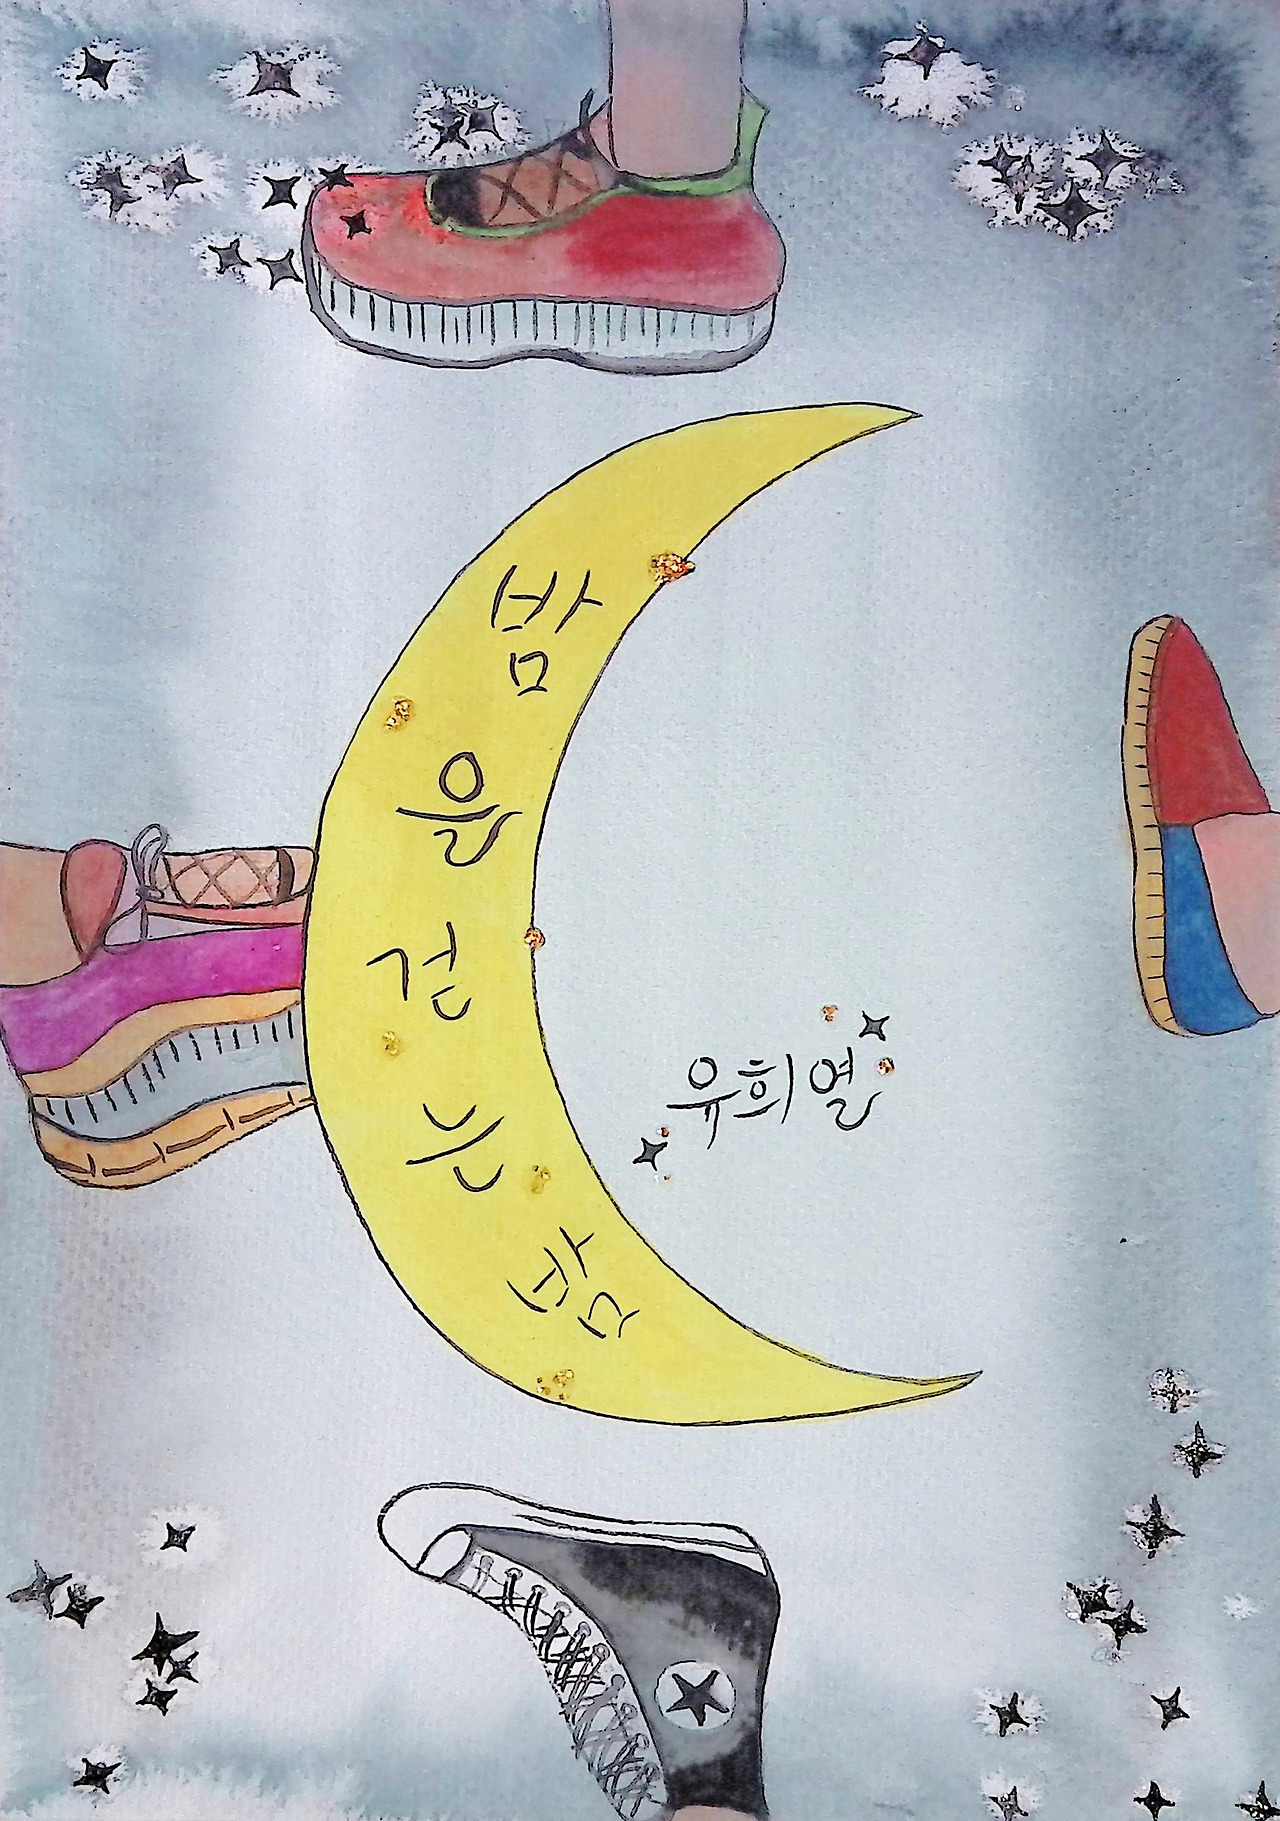 밤을 걷는 밤
유희열